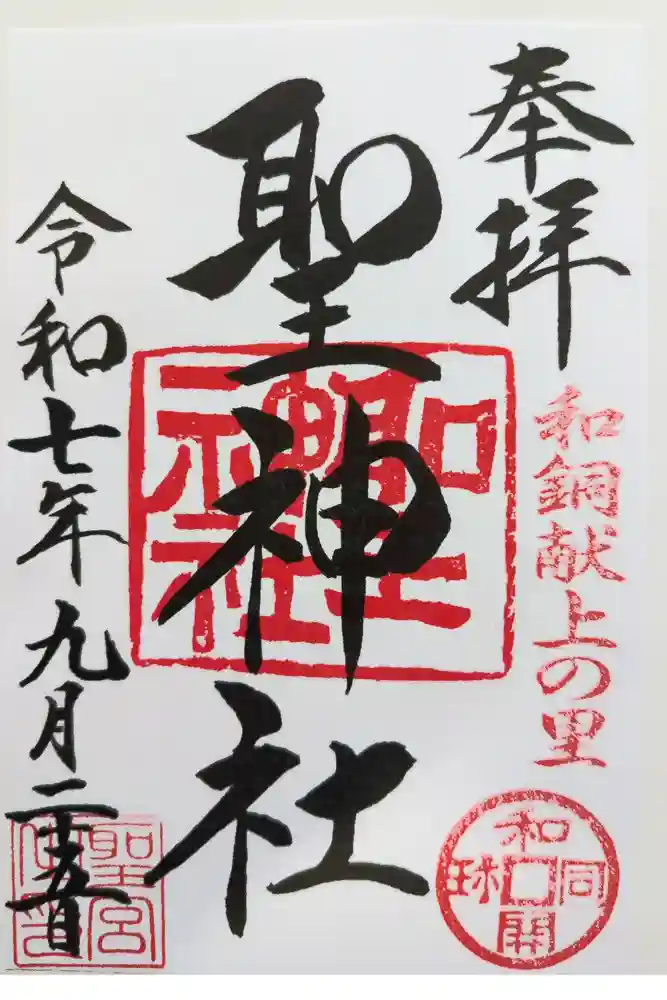 奉拝
和銅献上の里
和同開珎
聖神社
聖神社
令和七年九月二十五日
聖宮